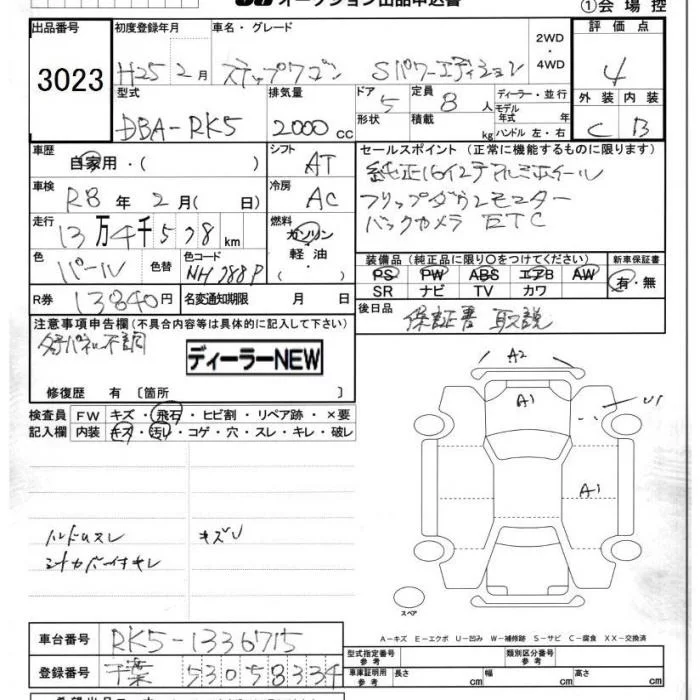 オークション出品申込書
①会場控
出品番号 初度登録年月 車名・グレード 2WD・4WD 評価点
3023 H25 2月 ステップワゴン Sパワーエディション 4
型式 排気量 ドア 5 定員 8人 ディーラー・並行 外装 内装
DBA-RK5 2000cc 形状 積載 kg モデル年式 年 ハンドル 左・右 C B
車歴 自家用・( ) シフト AT セールスポイント (正常に機能するものに限ります)
純正16インチアルミホイール
車検 R8年 2月( 日) 冷房 AC フリップダウンモニター
走行 13万4千578km 燃料 ガソリン・軽油・( ) バックカメラ ETC
色 パール 色替 色コード NH788P 装備品 (純正品に限り○をつけてください) 新車保証書
PS PW ABS エアB AW 有・無
SR ナビ TV カワ
R券 13840円 名変通知期限 月 日 後日品 保証書 取説
注意事項申告欄 (不具合内容等は具体的に記入して下さい)
不調
ディーラーNEW
修復歴 有〔箇所 〕
検査員 FW キズ・飛石・ヒビ割・リペア跡・×要
記入欄 内装 キズ・汚レ・コゲ・穴・スレ・キレ・破レ
A2
A1
U1
A1
ハンドルスレ キズU
シートカバー付キレ
スペア
A-キズ E-エクボ U-凹み W-補修跡 S-サビ C-腐食 XX-交換済
車台番号 RK5-1336715 型式指定番号 参考 類別区分番号 参考
登録番号 千葉 530 5 8334 車庫証明用 参考 長さ cm 幅 cm 高さ cm